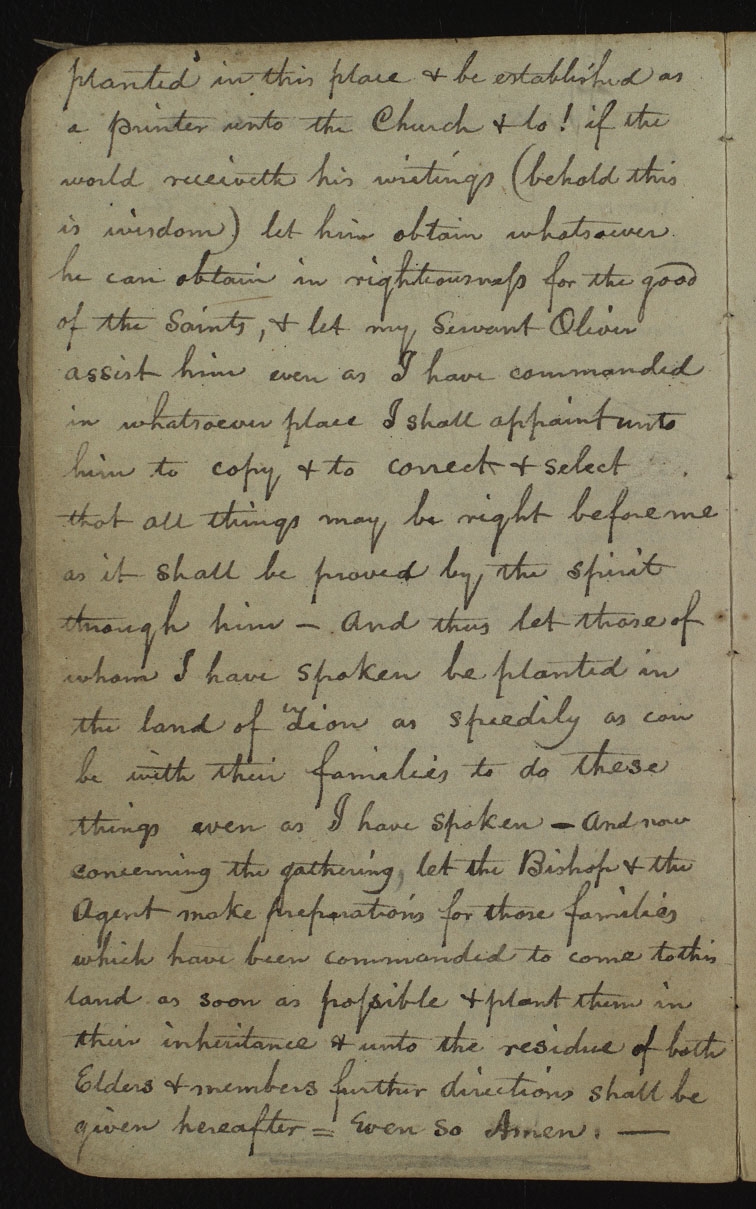 planted in this place & be established as
a printer unto the Church & lo! if the
world receiveth his writings (behold this
is wisdom) let him obtain whatsoever
he can obtain in righteousness for the good
of the Saints, & let my Servant Oliver
assist him even as I have commanded
in whatsoever place I shall appoint unto
him to copy & to correct & select
that all things may be right before me
as it shall be proved by the spirit
through him — And thus let those of
whom I have spoken be planted in
the land of Zion as speedily as can
be with their families to do these
things even as I have spoken — And now
concerning the gathering, let the Bishop & the
Agent make preparations for those families
which have been commanded to come to this
land as soon as possible & plant them in
their inheritance & unto the residue of both
Elders & members further directions shall be
given hereafter = Even so Amen. —